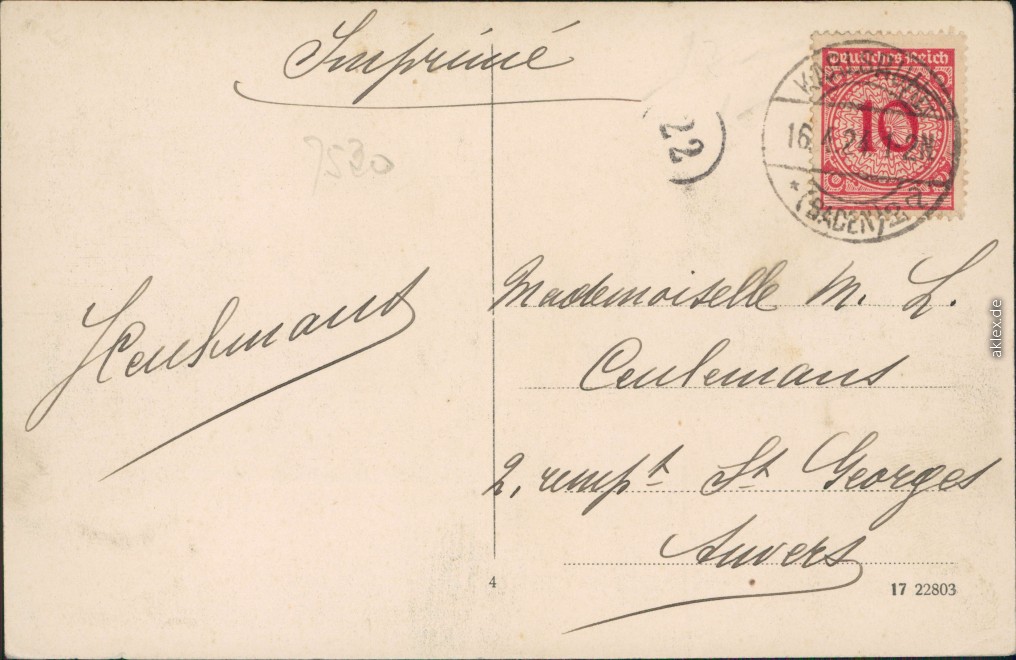 Imprimé
7530
22
Deutsches Reich
10
16.4.24. 1-2N
* (BADEN)
Mademoiselle M. L.
Ceulemans
2, remp^t St Georges
Anvers
4
17 22803
aklex.de